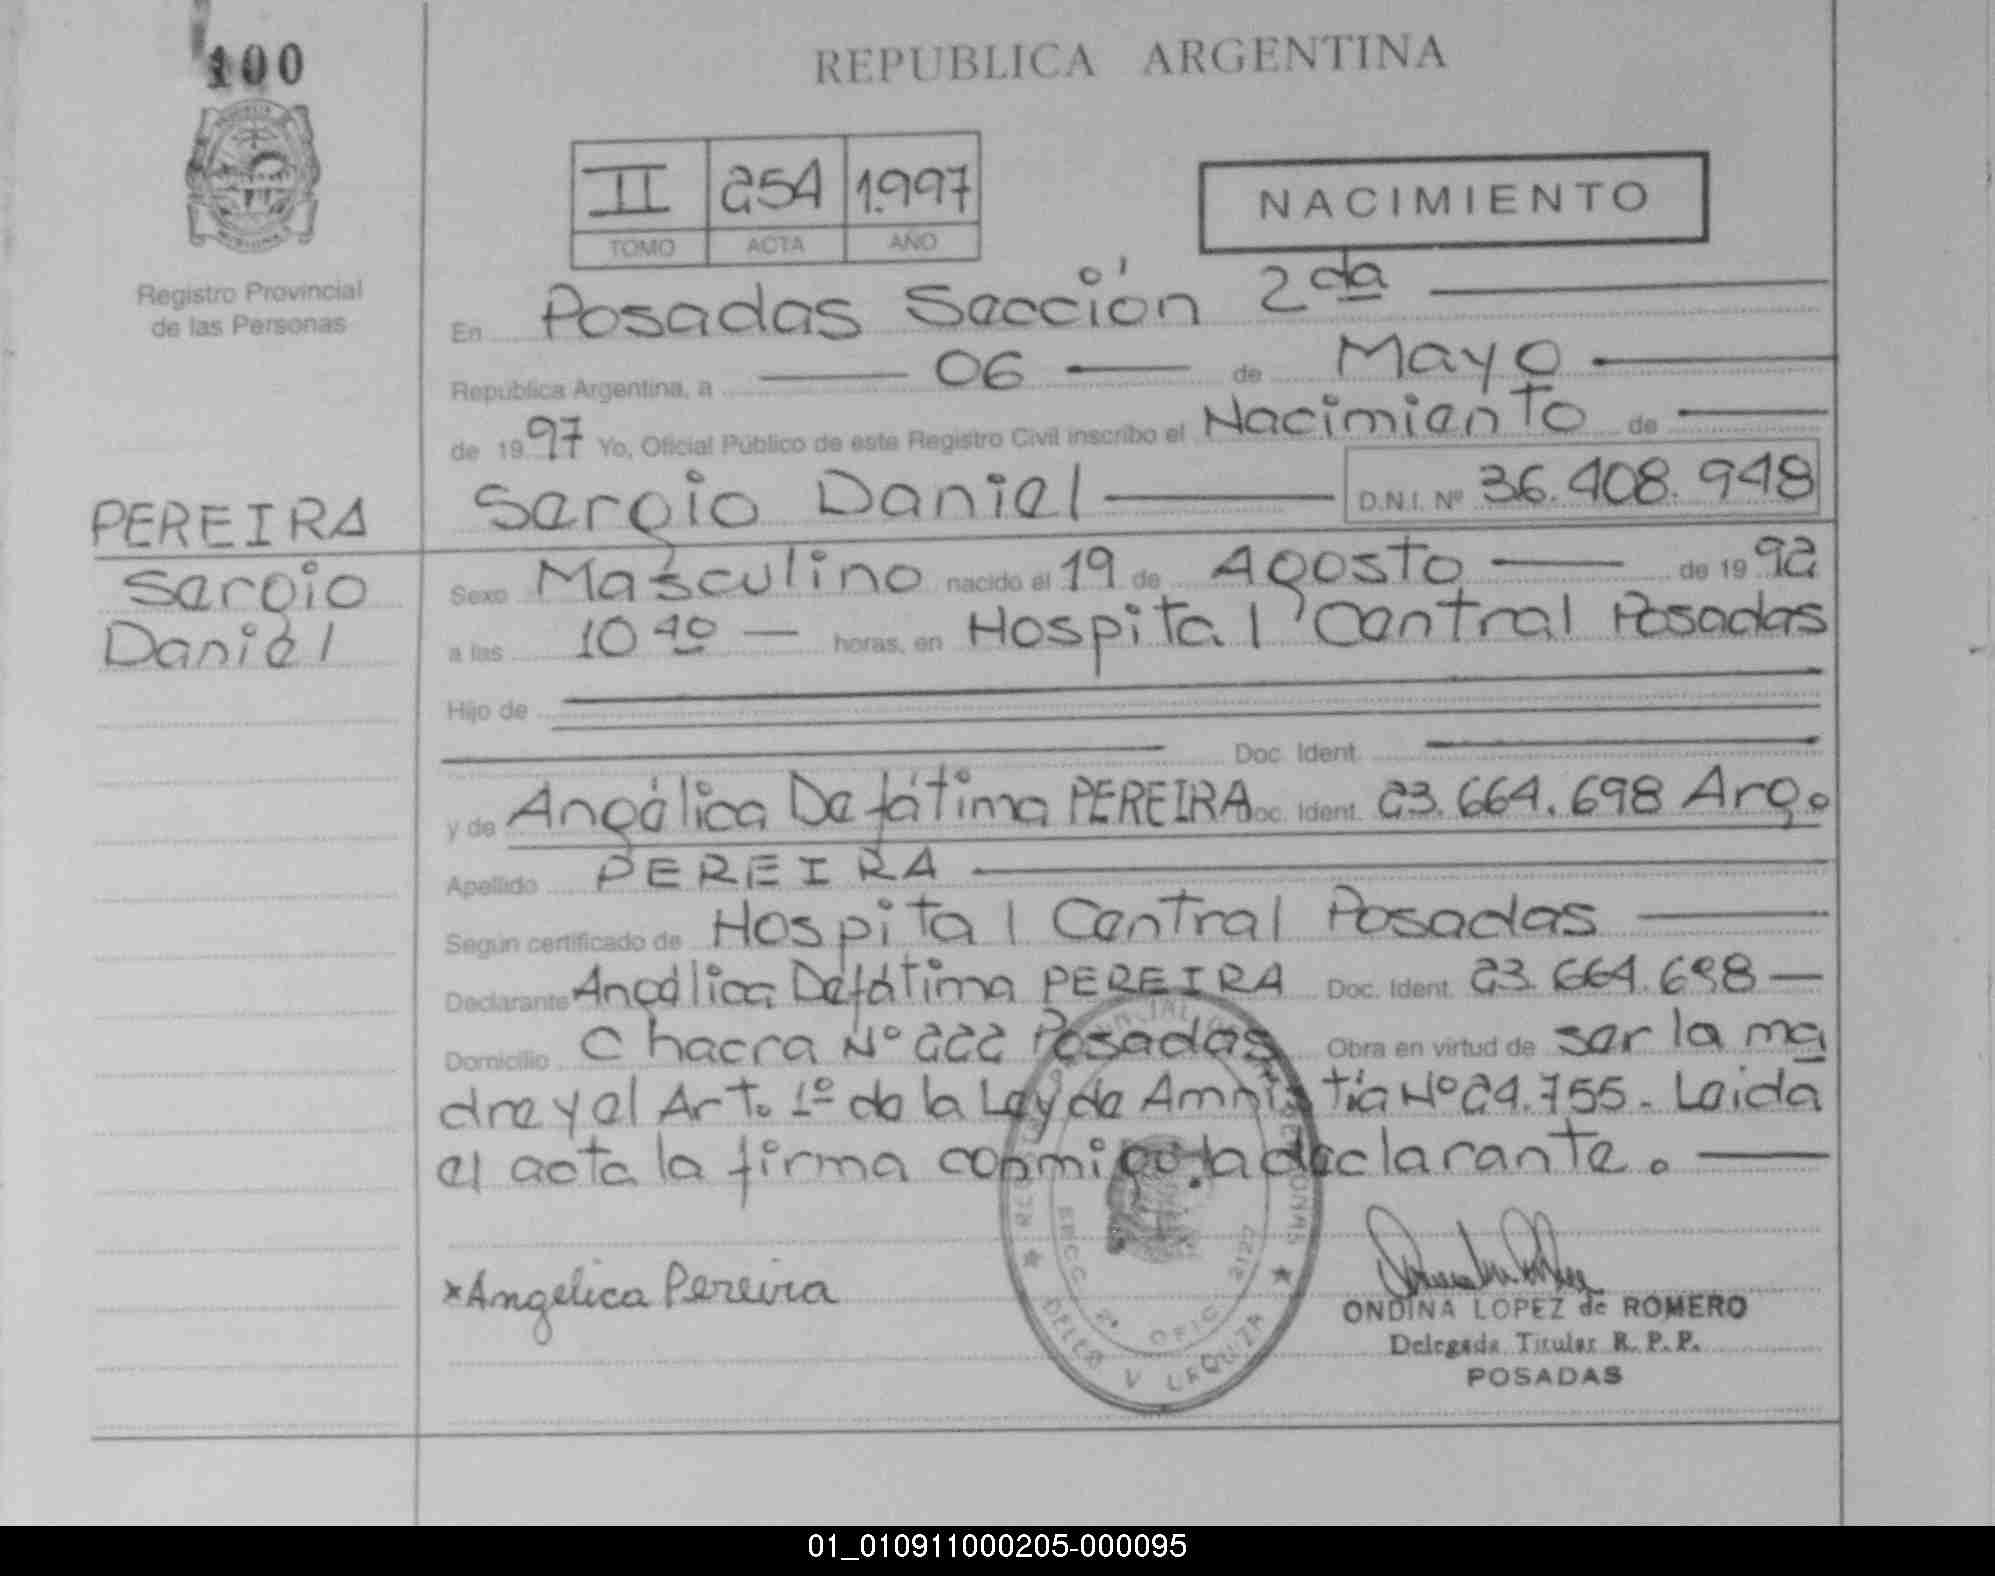 100
REPUBLICA ARGENTINA
II 254 1.997
TOMO ACTA AÑO
NACIMIENTO
Registro Provincial
de las Personas
En Posadas Sección 2da
Republica Argentina, a 06 de Mayo
de 1997 Yo, Oficial Público de este Registro Civil inscribo el Nacimiento de
Sergio Daniel D.N.I. Nº 36.408.948
PEREIRA
Sergio
Daniel
Sexo Masculino nacido el 19 de Agosto de 1992
a las 10 40 horas, en Hospital Central Posadas
Hijo de
Doc. Ident.
y de Angélica De fátima PEREIRA Doc. Ident. 23.664.698 Arg.
Apellido PEREIRA
Según certificado de Hospital Central Posadas
Declarante Angélica De fátima PEREIRA Doc. Ident. 23.664.698
Domicilio Chacra Nº 222 Posadas Obra en virtud de ser la ma
dre y el Art. 1º de la Ley de Amnistía Nº 24.755. Leida
el acta la firma conmigo la declarante.
*Angelica Pereira
SECC. 2ª OFIC. 2127
DELEG V URQUIZA
ONDINA LOPEZ de ROMERO
Delegada Titular R. P. P.
POSADAS
01_010911000205-000095